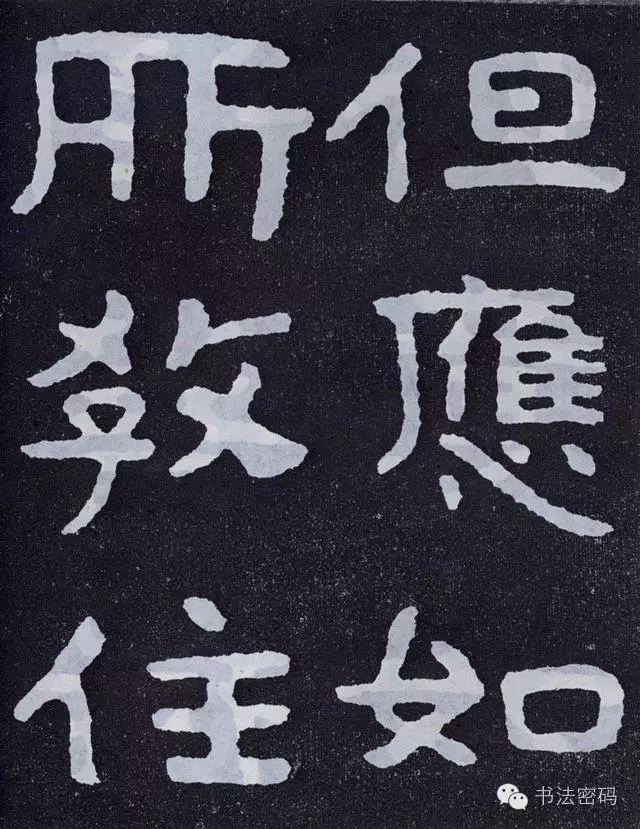 但應如
所教住
书法密码